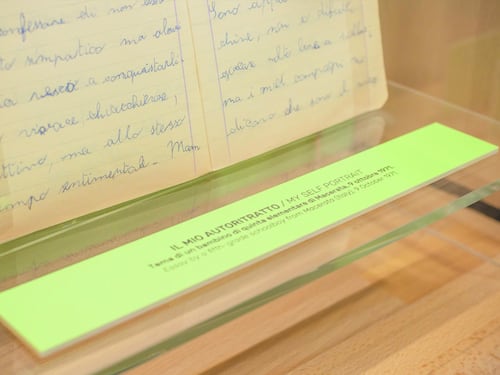 confessare di non
simpatico ma alme
riesco a conquistarli.
vivace chiacchierone,
ttivo, ma allo stesso
empo sentimentale. Mam
sono
chine, non è difficile
ma i miei compagni
dicono che sono il
IL MIO AUTORITRATTO / MY SELF PORTRAIT
Tema di un bambino di quinta elementare di Macerata, 9 ottobre 1971.
Essay by a fifth-grade schoolboy from Macerata (Italy), 9 October 1971.